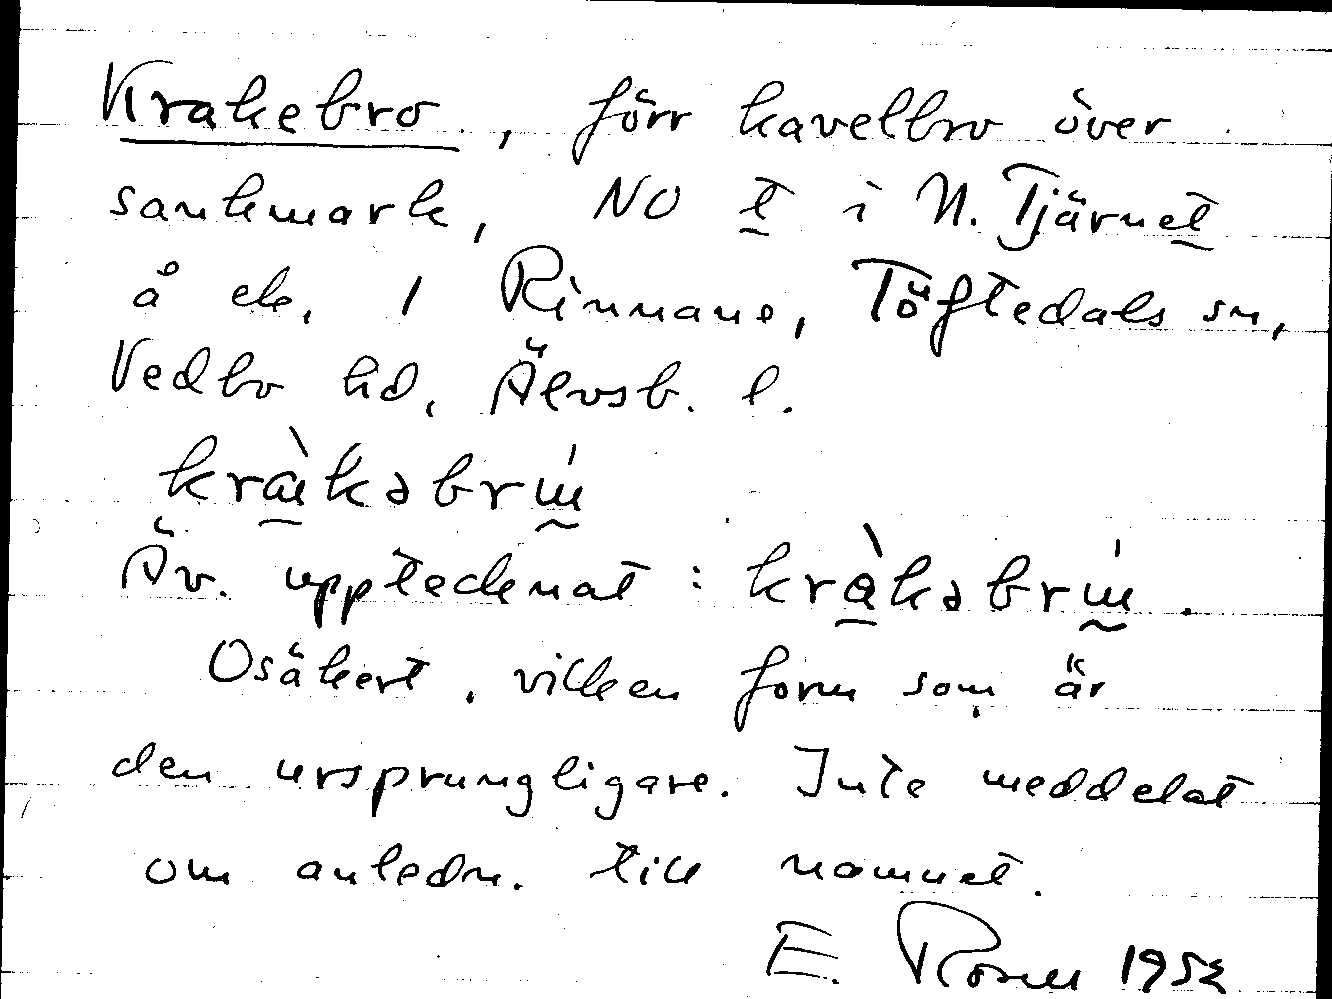 Krakebro, förr kavelbro över
sankmark, NO t i N. Tjärnet
å ek. 1 Rinnane, Töftedals sn,
Vedbo hd, Älvsb. l.
kràkəbrɯ́
Äv. upptecknat: kràkəbrɯ́.
Osäkert, vilken form som är
den ursprungligare. Inte meddelat
om anledn. till namnet.
E. Rosen 1952